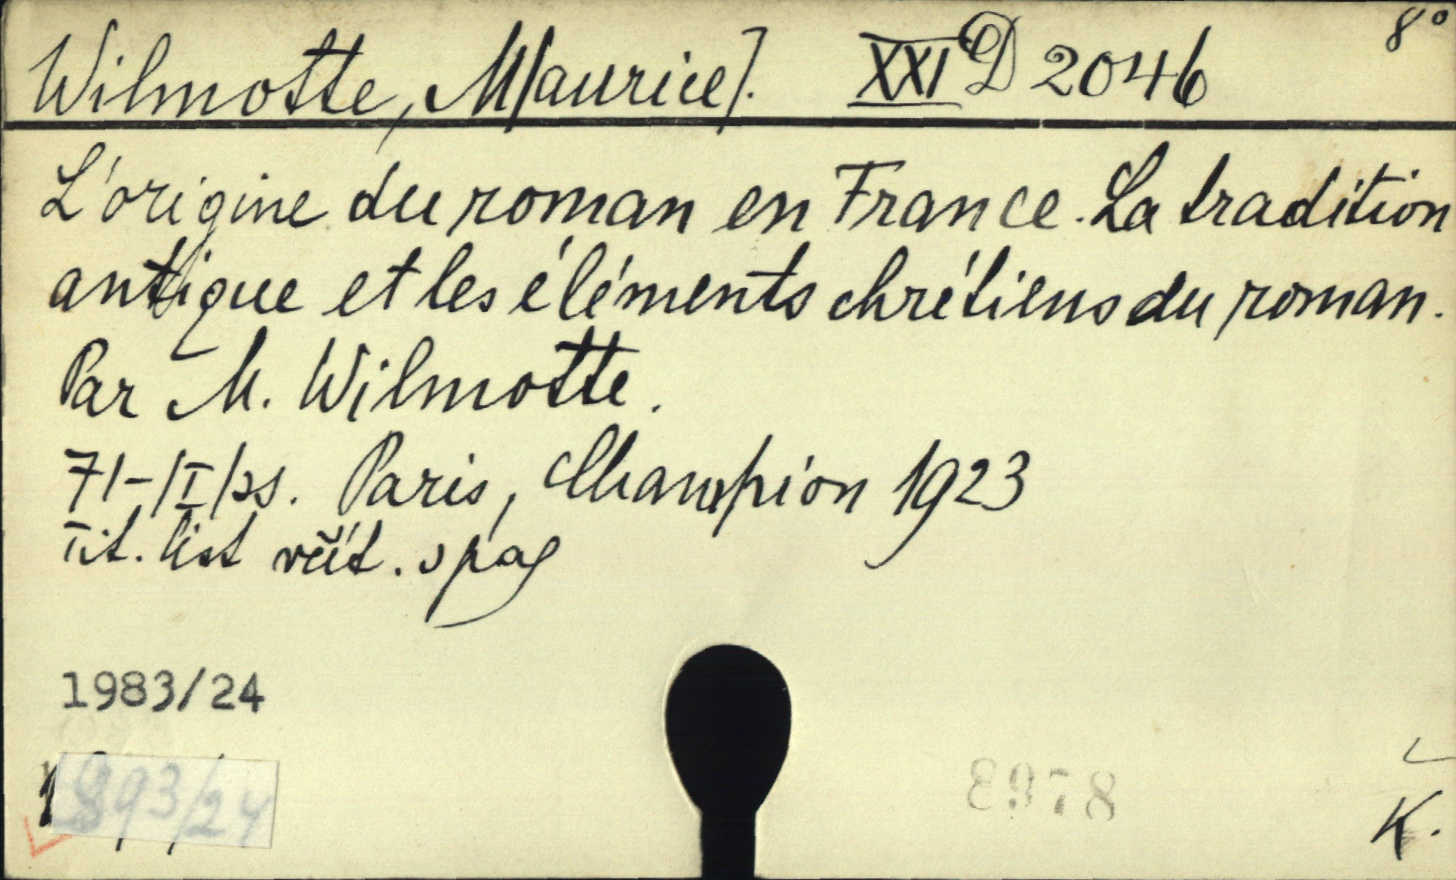 8°
Wilmotte, M[aurice]. XXI D 2046
L'origine du roman en France. La tradition
antique et les éléments chrétiens du roman.
Par M. Wilmotte.
71-/I/ss. Paris, Champion 1923
Tit. list včít. v pag
1983/24
893/24
8978
K.